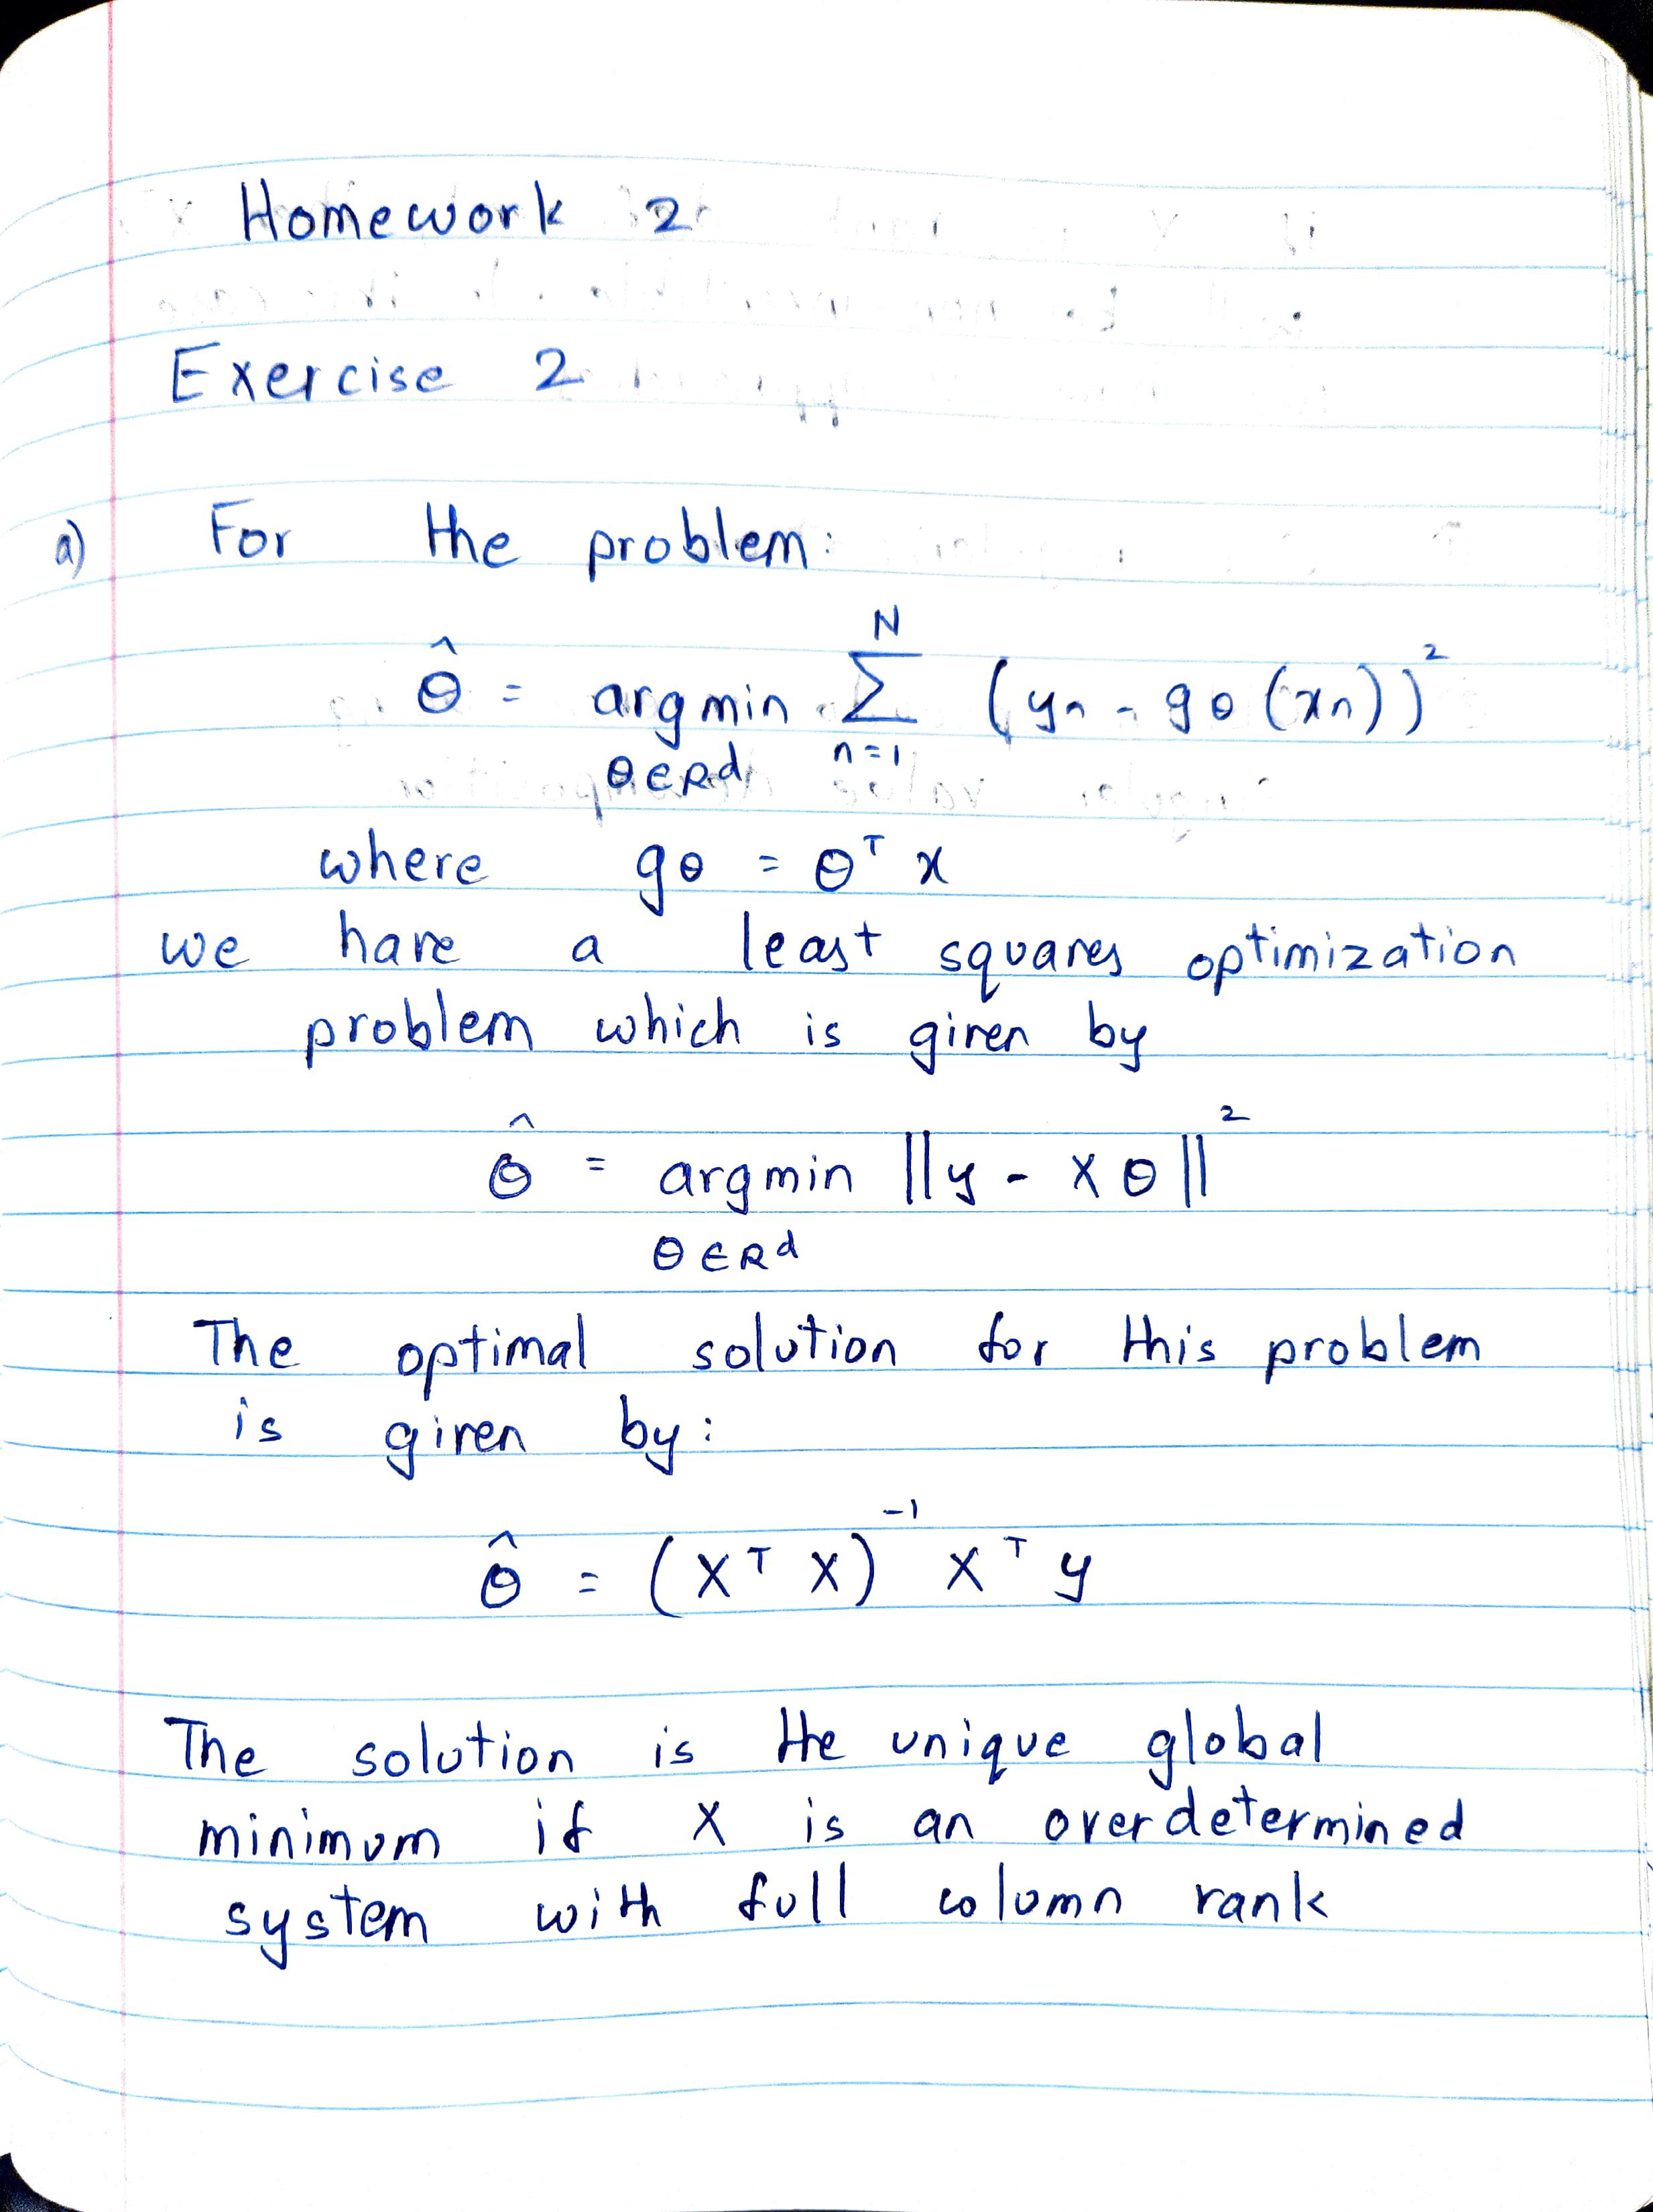 Homework 2
Exercise 2
a) For the problem:
θ̂ = argmin_{θ∈R^d} Σ_{n=1}^{N} (y_n - g_θ(x_n))²
where g_θ = θ^T x
we have a least squares optimization
problem which is given by
θ̂ = argmin_{θ∈R^d} ||y - Xθ||²
The optimal solution for this problem
is given by:
θ̂ = (X^T X)^{-1} X^T y
The solution is the unique global
minimum if X is an overdetermined
system with full column rank